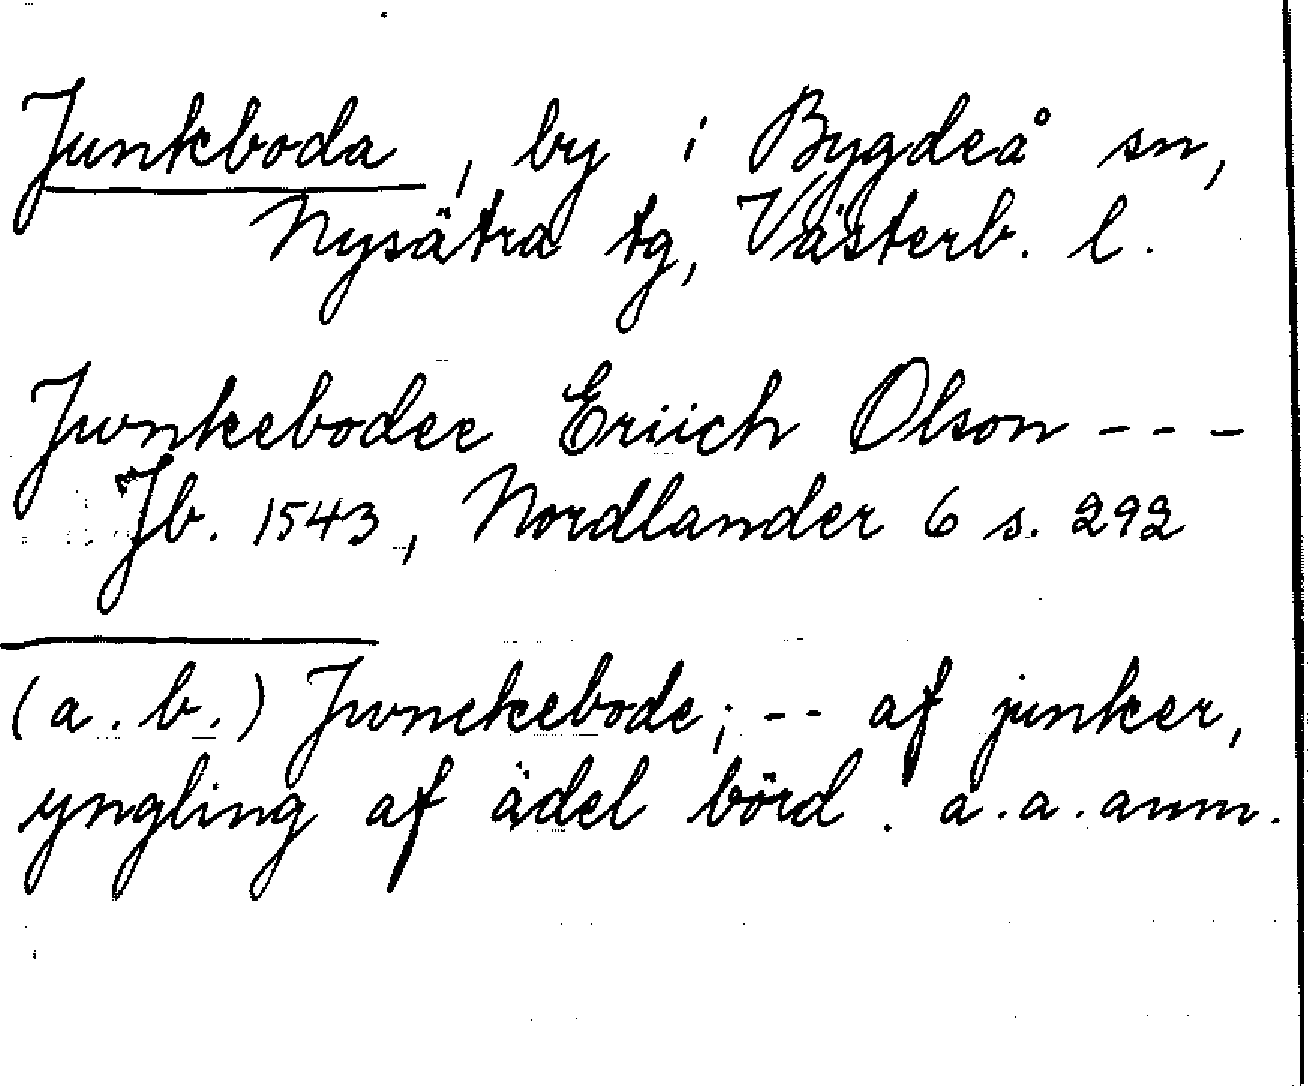 Junkboda, by i Bygdeå sn,
Nysätra tg, Västerb. l.
Jwnkebodee Eriich Olson ---
Jb. 1543, Nordlander 6 s. 292
(a. b.) Jwnckebode; -- af junker,
yngling af ädel börd. a.a.anm.